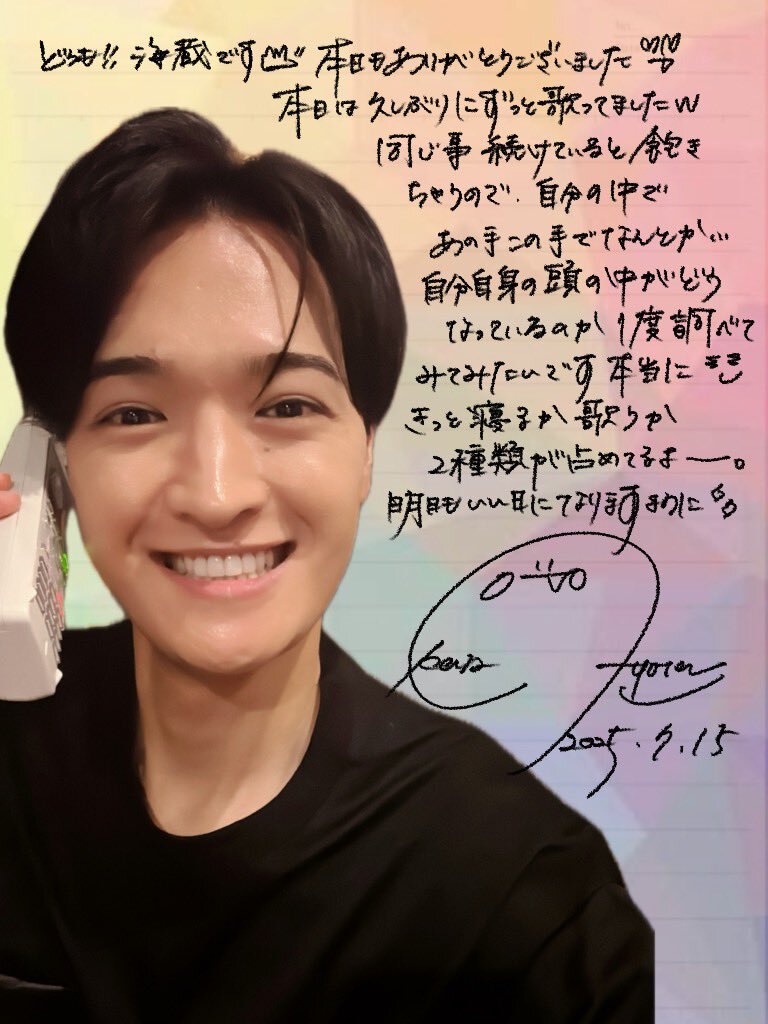 どうも!! 海蔵です 本日もありがとうございました
本日は久しぶりにずっと歌ってましたw
同じ事続けていると飽き
ちゃうので、自分の中で
あの手この手でなんとか...
自分自身の頭の中がどう
なっているのか1度調べて
みてみたいです本当に
きっと寝るか歌うか
2種類が占めてるよー。
明日もいい日になりますように
2025.7.15